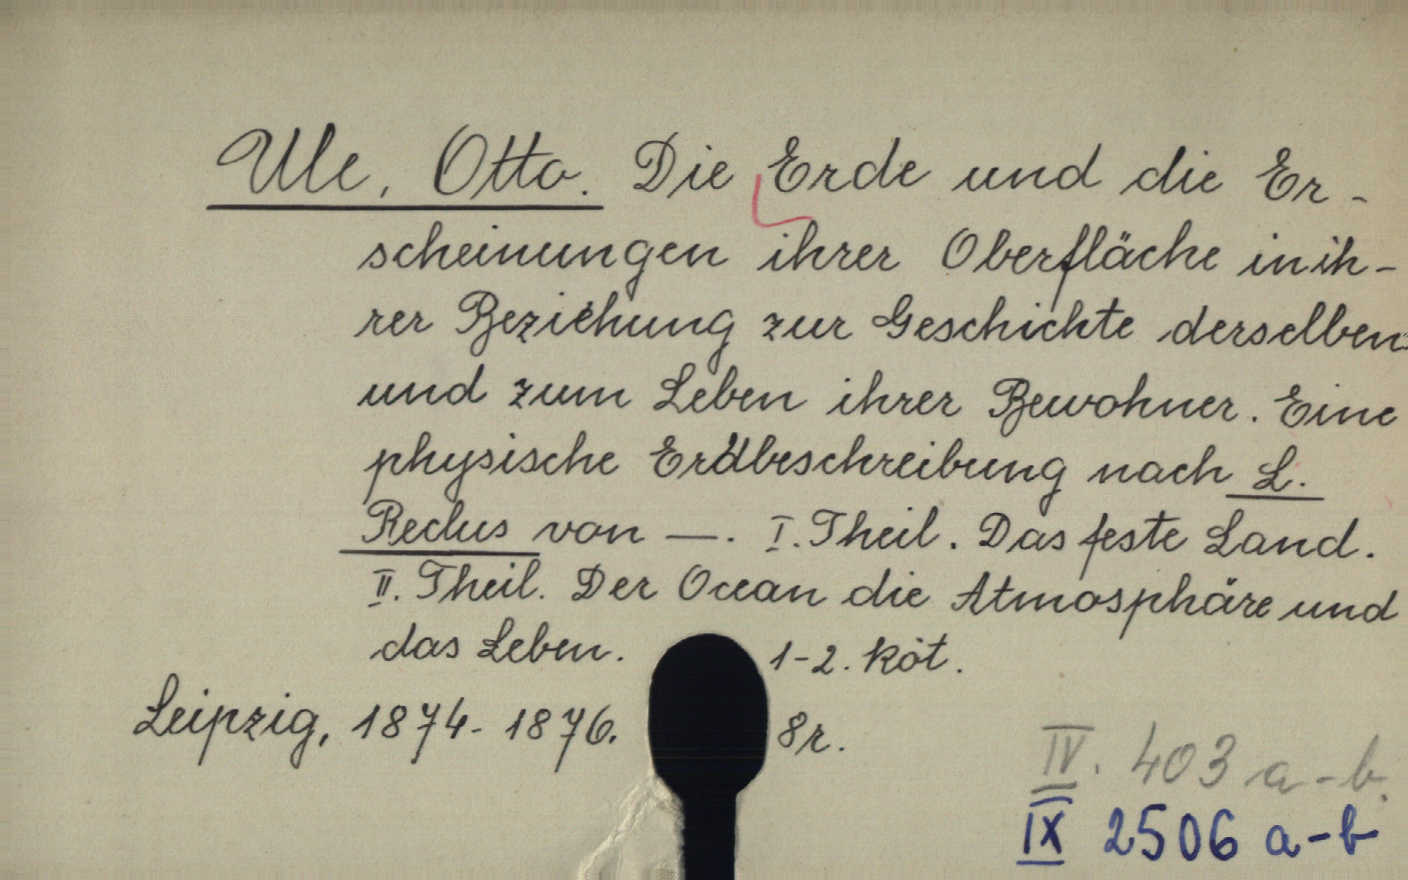 Ule, Otto. Die Erde und die Er-
scheinungen ihrer Oberfläche in ih-
rer Beziehung zur Geschichte derselben
und zum Leben ihrer Bewohner. Eine
physische Erdbeschreibung nach L.
Reclus von —. I. Theil. Das feste Land.
II. Theil. Der Ocean die Atmosphäre und
das Leben. 1-2. köt.
Leipzig, 1874-1876. 8r.
IV. 403 a-b.
IX 2506 a-b